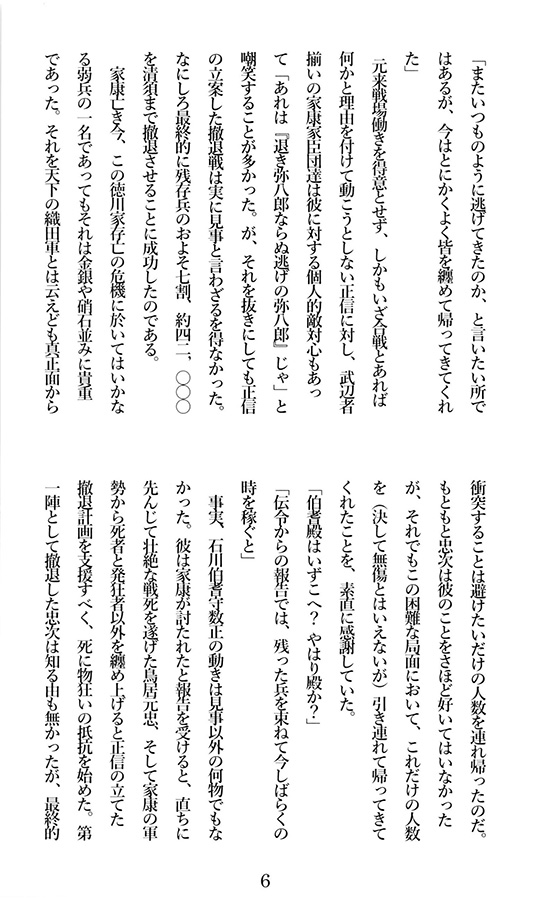 「またいつものように逃げてきたのか、と言いたい所で
はあるが、今はとにかくよく皆を纏めて帰ってきてくれ
た」
　元来戦場働きを得意とせず、しかもいざ合戦とあれば
何かと理由を付けて動こうとしない正信に対し、武辺者
揃いの家康家臣団達は彼に対する個人的敵対心もあっ
て「あれは『退き弥八郎ならぬ逃げの弥八郎』じゃ」と
嘲笑することが多かった。が、それを抜きにしても正信
の立案した撤退戦は実に見事と言わざるを得なかった。
なにしろ最終的に残存兵のおよそ七割、約四二、〇〇〇
を清須まで撤退させることに成功したのである。
　家康亡き今、この徳川家存亡の危機に於いてはいかな
る弱兵の一名であってもそれは金銀や硝石並みに貴重
であった。それを天下の織田軍とは云えども真正面から
衝突することは避けたいだけの人数を連れ帰ったのだ。
もともと忠次は彼のことをさほど好いてはいなかった
が、それでもこの困難な局面において、これだけの人数
を（決して無傷とはいえないが）引き連れて帰ってきて
くれたことを、素直に感謝していた。
「伯耆殿はいずこへ？　やはり殿か？」
「伝令からの報告では、残った兵を束ねて今しばらくの
時を稼ぐと」
　事実、石川伯耆守数正の動きは見事以外の何物でもな
かった。彼は家康が討たれたと報告を受けると、直ちに
先んじて壮絶な戦死を遂げた鳥居元忠、そして家康の軍
勢から死者と発狂者以外を纏め上げると正信の立てた
撤退計画を支援すべく、死に物狂いの抵抗を始めた。第
一陣として撤退した忠次は知る由も無かったが、最終的
6